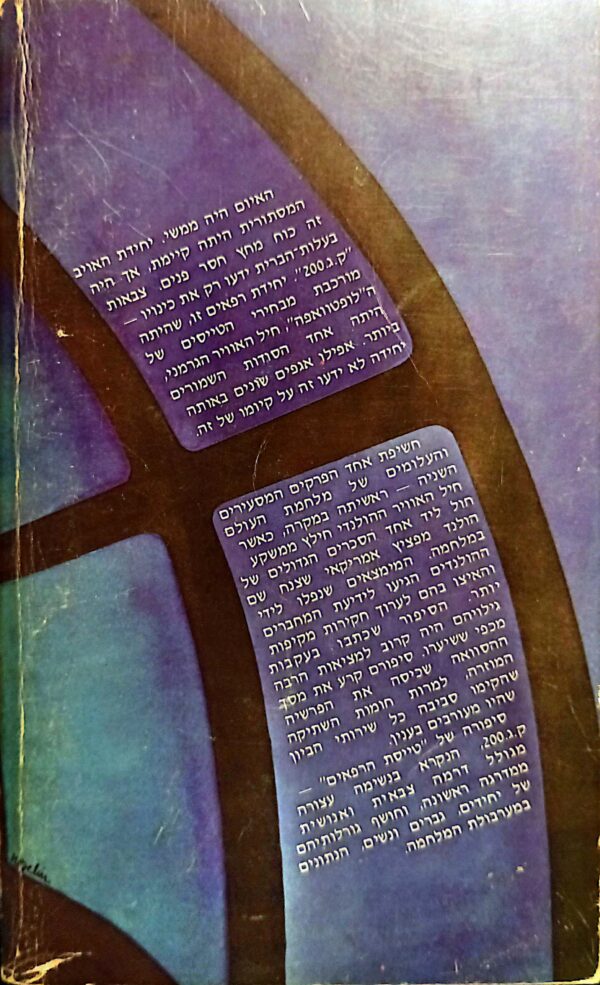 האיום היה ממשי. יחידת האויב
המסתורית היתה קיימת, אך היה
זה כוח מחץ חסר פנים. צבאות
בעלות־הברית ידעו רק את כינויו —
"ק.ג.200". יחידת רפאים זו, שהיתה
מורכבת מבחירי הטייסים של
ה"לופטוואפה", חיל האוויר הגרמני,
היתה אחד הסודות השמורים
ביותר. אפילו אגפים שונים באותה
יחידה לא ידעו זה על קיומו של זה.
חשיפת אחד הפרקים המסעירים
והעלומים של מלחמת העולם
השניה — ראשיתה במקרה, כאשר
חיל האוויר ההולנדי חילץ ממשקע
חול ליד אחד הסכרים הגדולים של
הולנד מפציץ אמריקאי שצנח שם
במלחמה. המימצאים שנפלו לידי
ההולנדים הגיעו לידיעת המחברים
והאיצו בהם לערוך חקירות מקיפות
יותר. הסיפור שכתבו בעקבות
גילוייהם היה קרוב למציאות הרבה
מכפי ששיערו. סיפורם קרע את מסך
ההסוואה שכיסה את הפרשיה
המוזרה, למרות חומות השתיקה
שהקימו סביבה כל שירותי הביון
שהיו מעורבים בענין.
סיפורה של "טייסת הרפאים" —
ק.ג.200, הנקרא בנשימה עצורה
מגולל דרמה צבאית ואנושית
ממדרגה ראשונה, וחושף גורלותיהם
של יחידים, גברים ונשים, הנתונים
במערבולת המלחמה.